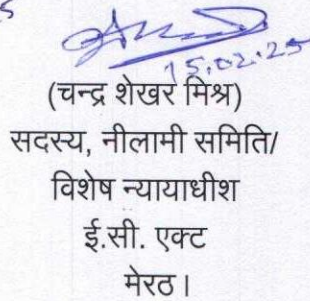 15.02.25
(चन्द्र शेखर मिश्र)
सदस्य, नीलामी समिति/
विशेष न्यायाधीश
ई.सी. एक्ट
मेरठ।